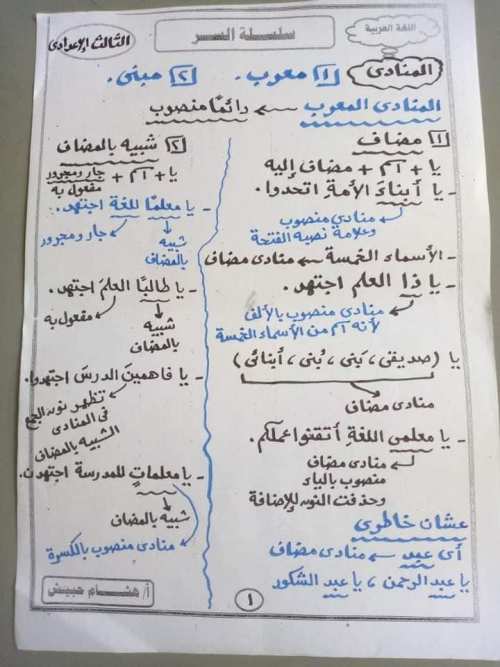 اللغة العربية
سلسلة السر
الثالث الإعدادى
المنادى
١ معرب. ٢ مبنى.
المنادى المعرب ← دائمًا منصوب
١ مضاف
يا + اسم + مضاف إليه
- يا أبناءَ الأمةِ اتحدوا.
منادى منصوب
وعلامة نصبه الفتحة
- الأسماء الخمسة ← منادى مضاف
- يا ذا العلم اجتهد.
منادى منصوب بالألف
لأنه اسم من الأسماء الخمسة
يا (صديقى، بَنى، بُنى، أبنائى)
منادى مضاف
- يا معلمى اللغةِ أتقنوا عملكم.
منادى مضاف
منصوب بالياء
وحذفت النون للإضافة
عشان خاطرى
أى عبد ← منادى مضاف
يا عبد الرحمن، يا عبد الشكور
٢ شبيه بالمضاف
يا + اسم + جار ومجرور
مفعول به
- يا معلمًا للغة اجتهد.
جار ومجرور
شبيه
بالمضاف
- يا طالبًا العلمَ اجتهد.
مفعول به
شبيه
بالمضاف
- يا فاهمينَ الدرسَ اجتهدوا.
تظهر نون الجمع
فى المنادى
الشبيه بالمضاف
- يا معلماتٍ للمدرسة اجتهدن.
شبيه بالمضاف
منادى منصوب بالكسرة
١
أ/ هشام حبيش